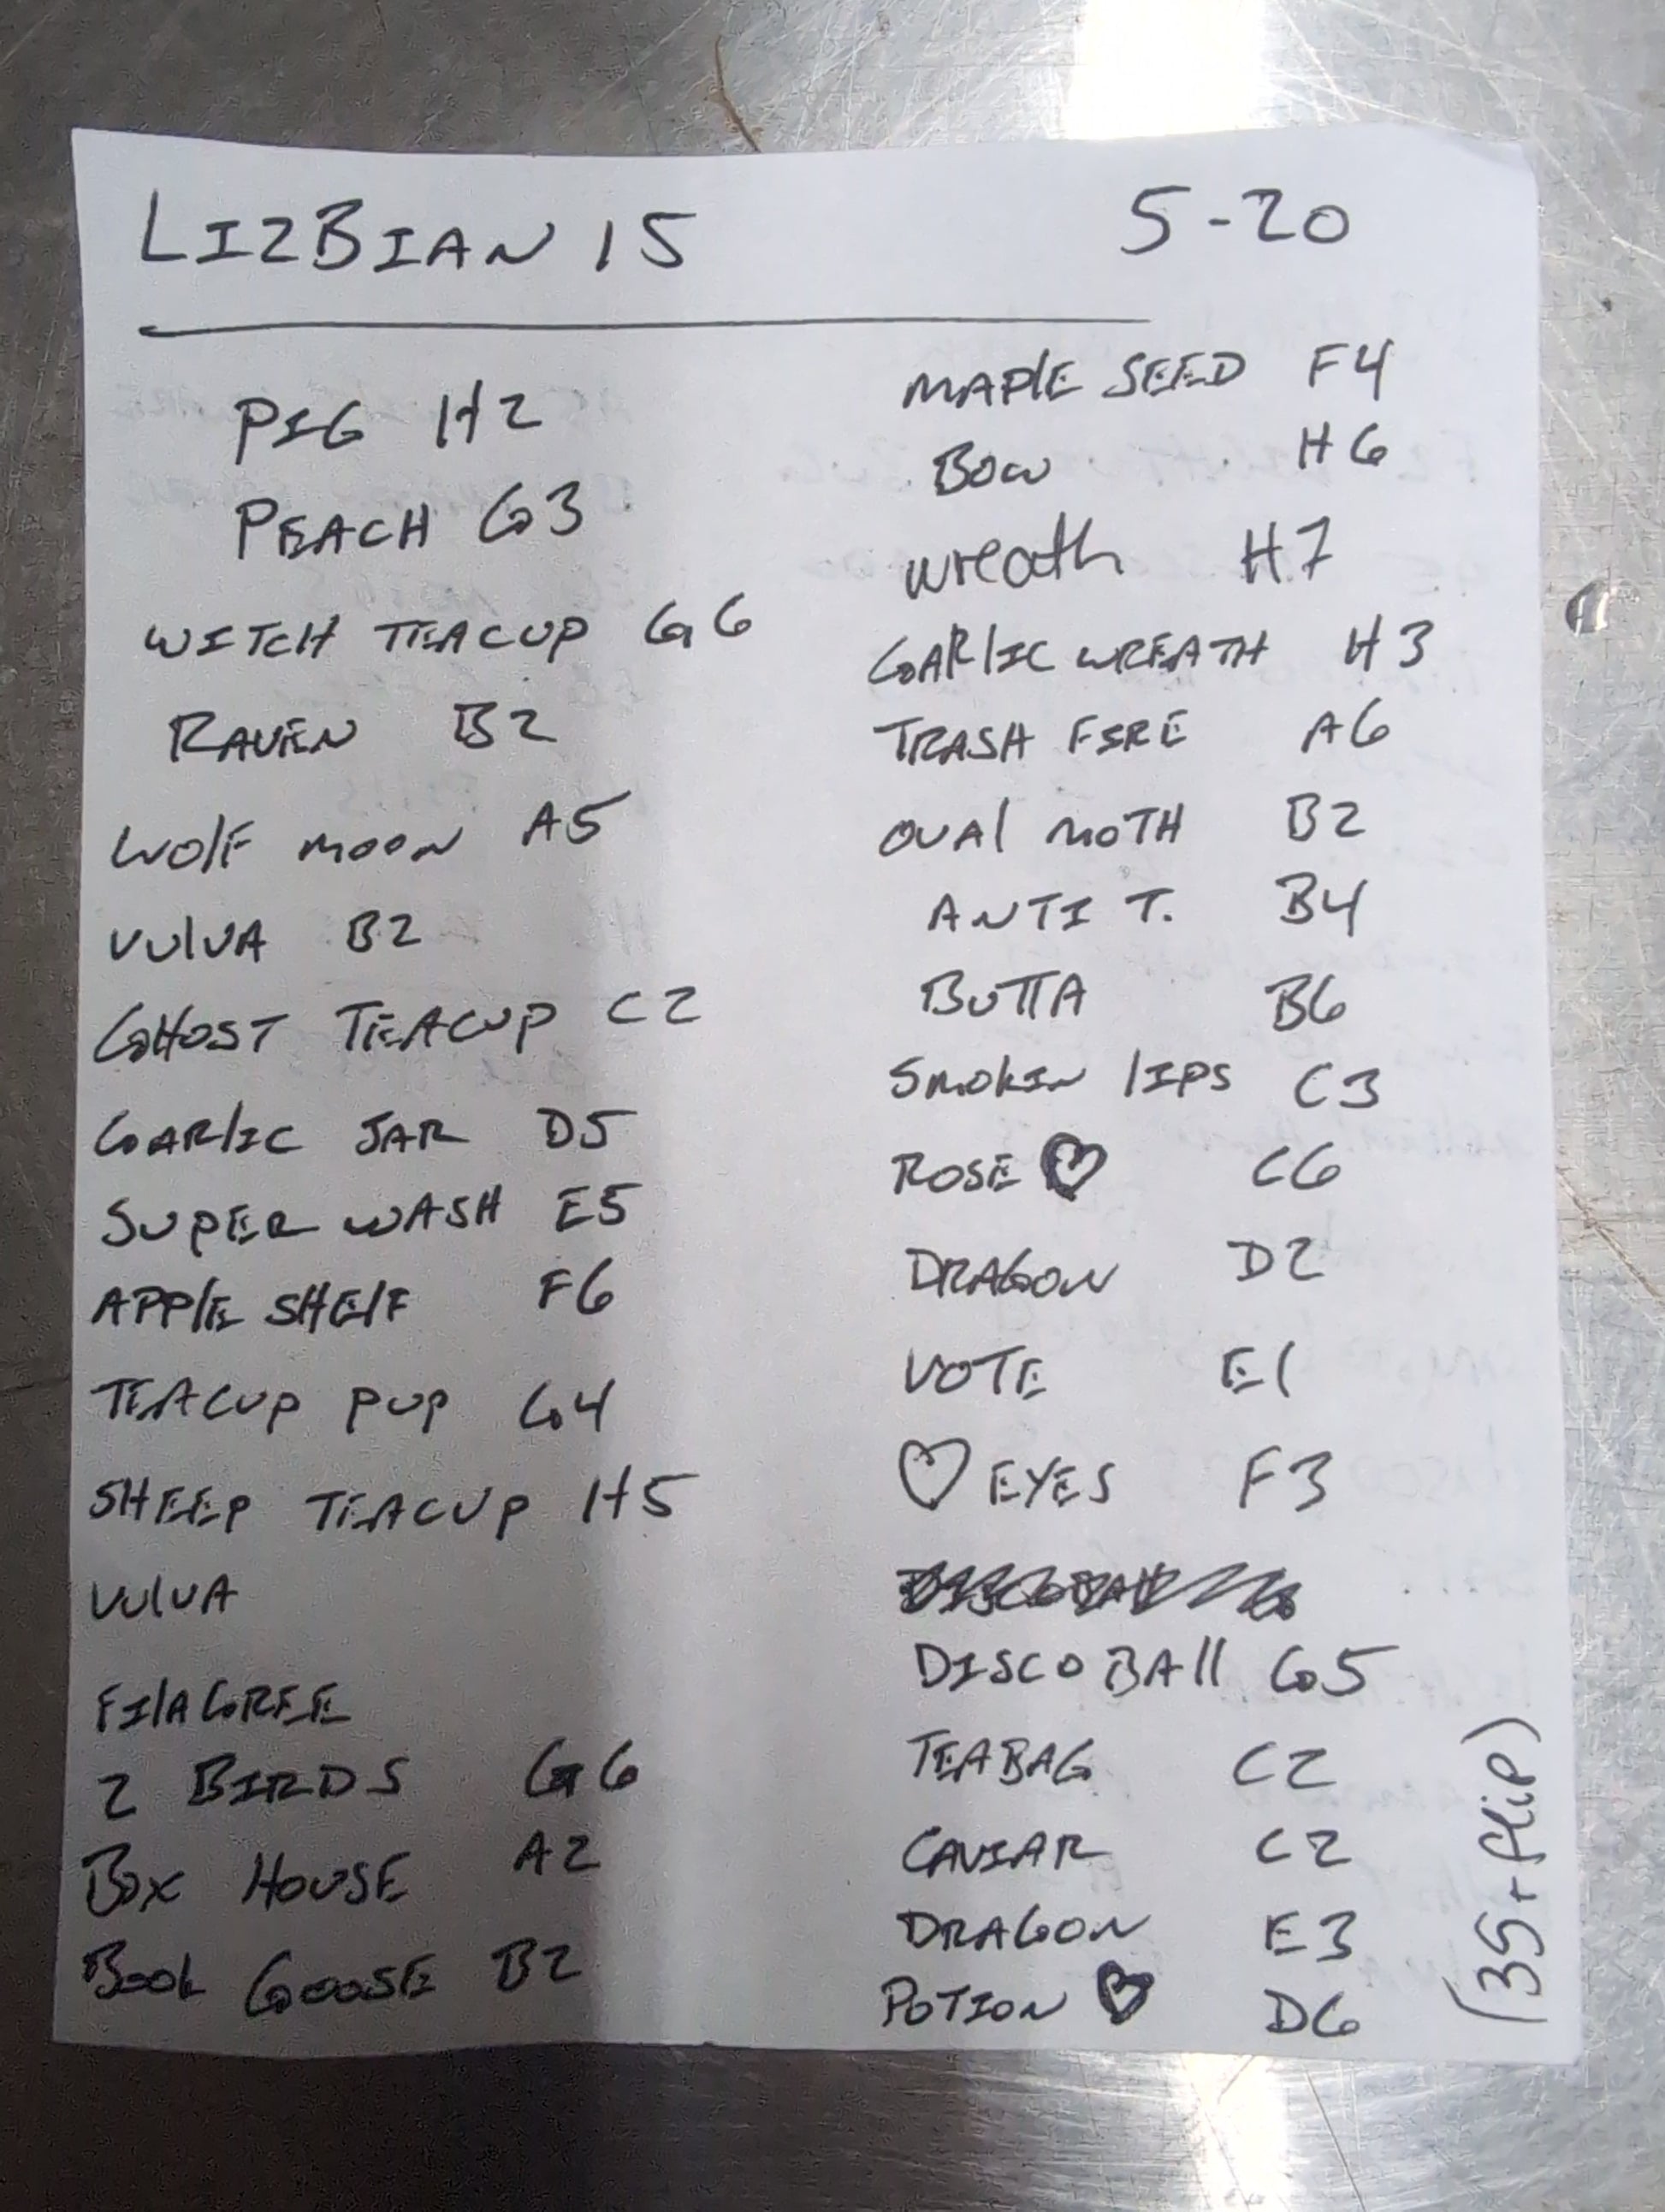 LIZBIAN 15
5-20
PIG H2
PEACH G3
WITCH TEACUP G6
RAVEN B2
WOLF MOON A5
VULVA B2
GHOST TEACUP C2
GARLIC JAR D5
SUPER WASH E5
APPLE SHELF F6
TEACUP PUP G4
SHEEP TEACUP H5
VULVA
FILAGREE
2 BIRDS G6
BOX HOUSE A2
BOOK GOOSE B2
MAPLE SEED F4
BOW H6
wreath H7
GARLIC WREATH H3
TRASH FIRE A6
OVAL MOTH B2
ANTI T. B4
BUTTA B6
SMOKIN LIPS C3
ROSE ♡ C6
DRAGON D2
VOTE E1
♡ EYES F3
DISCO BALL G5
TEABAG C2
CAVIAR C2
DRAGON E3
POTION ♡ D6
(35 + flip)